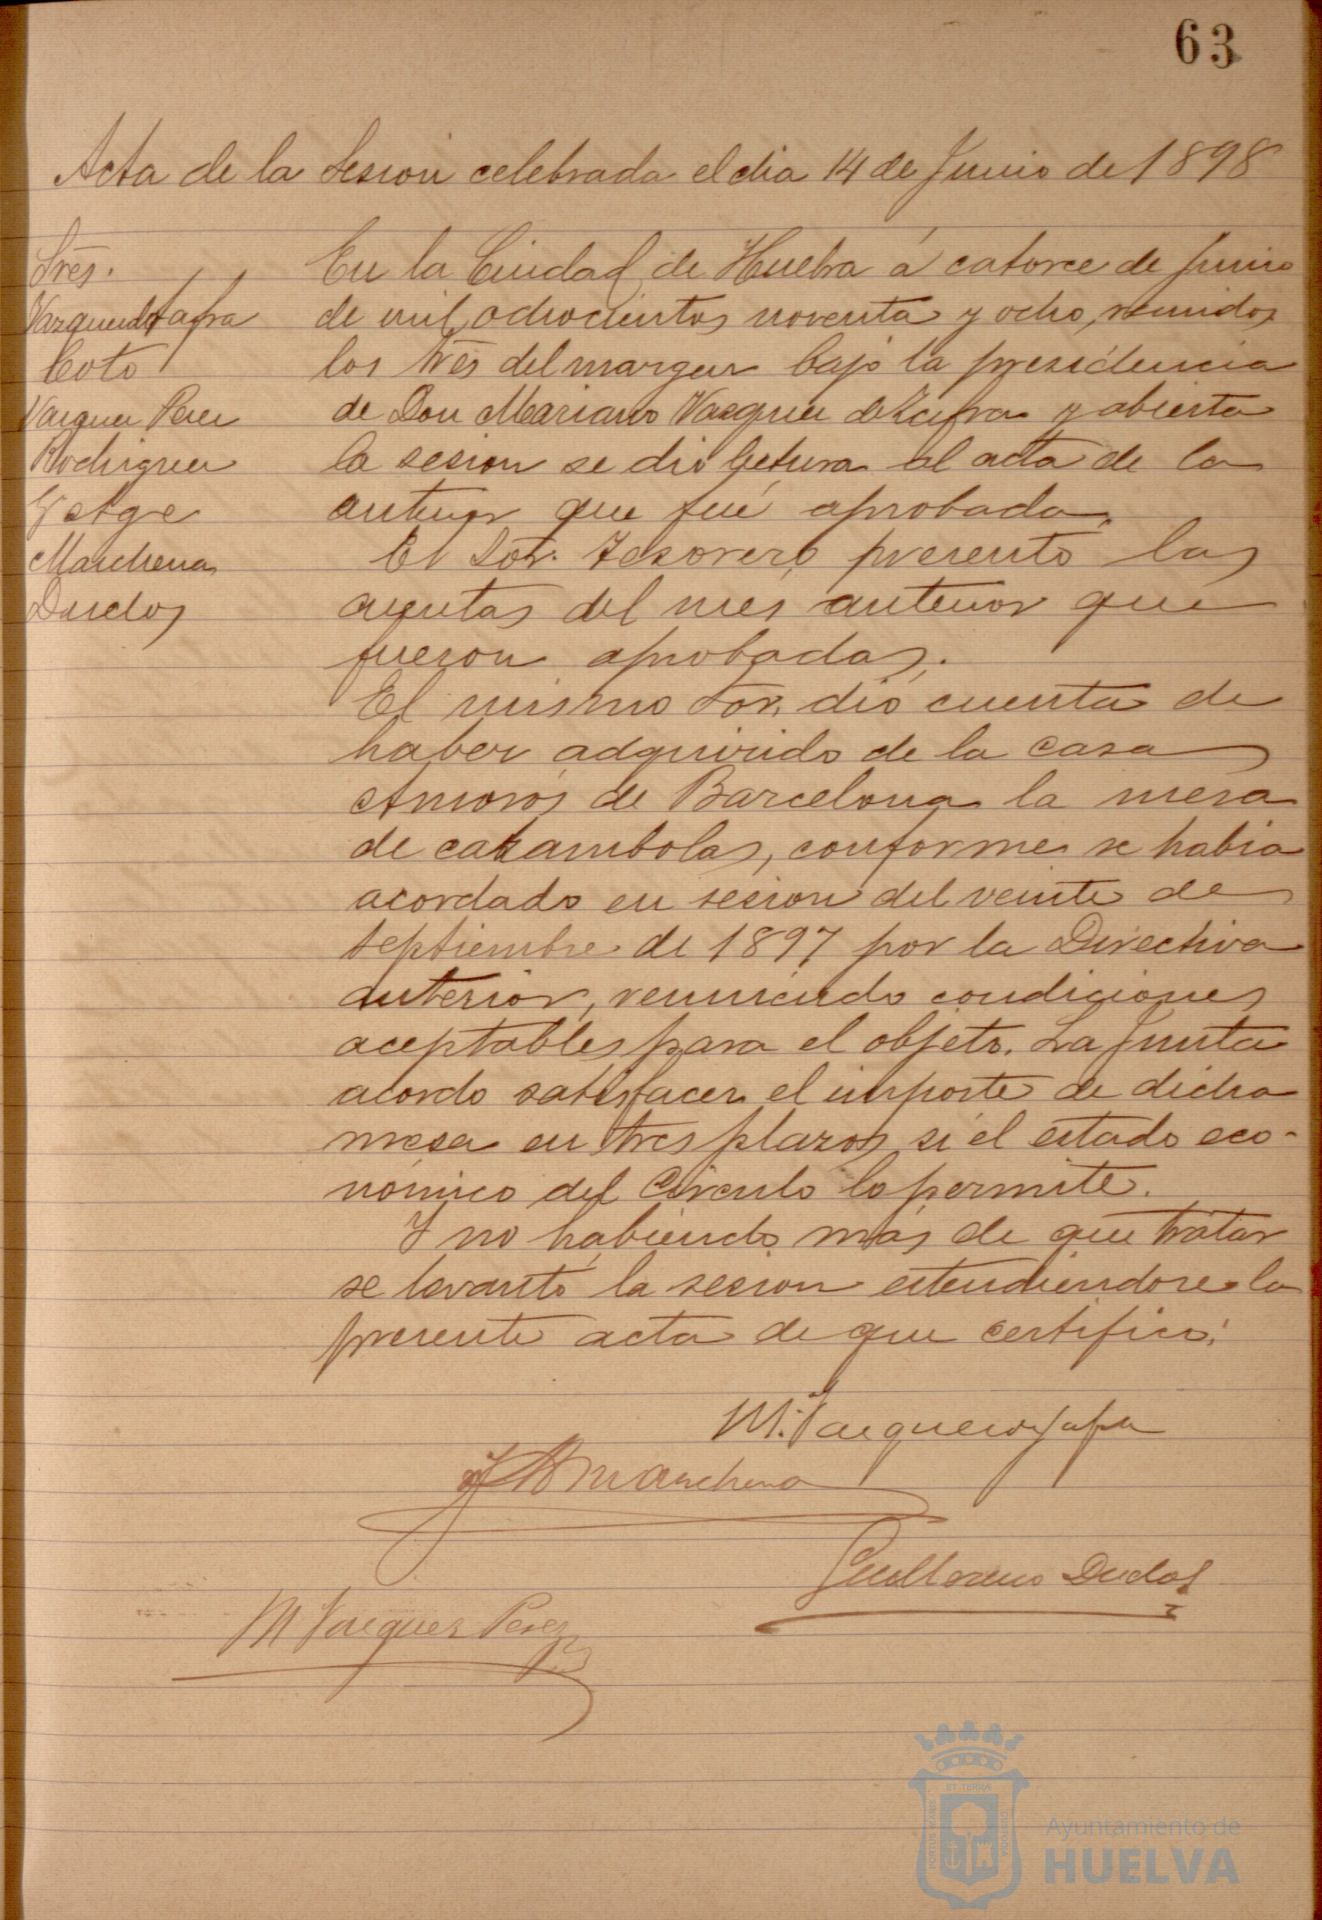 63
Acta de la Sesion celebrada el dia 14 de Junio de 1898
Sres.
Vazquez de Zafra
Coto
Vazquez Perez
Rodriguez
Yetge
Marchena
Duclos
En la Ciudad de Huelva á catorce de Junio
de mil ochocientos noventa y ocho, reunidos
los Sres del margen bajo la presidencia
de Don Mariano Vazquez de Zafra y abierta
la sesion se dió lectura al acta de la
anterior que fué aprobada.
El Sor. Tesorero presentó las
cuentas del mes anterior que
fueron aprobadas.
El mismo Sor. dió cuenta de
haber adquirido de la casa
Amorós de Barcelona la mesa
de carambolas, conforme se habia
acordado en sesion del veinte de
Septiembre de 1897 por la Directiva
anterior, reuniendo condiciones
aceptables para el objeto. La Junta
acordo satisfacer el importe de dicha
mesa en tres plazos si el estado eco-
nómico del Circulo lo permite.
Y no habiendo más de que tratar
se levantó la sesion estendiendose la
presente acta de que certifico.
M. Vazquez de Zafra
Marchena
Guillermo Duclos
M Vazquez Perez
PORTUS MARIS ET TERRÆ CUSTODIA
Ayuntamiento de
HUELVA